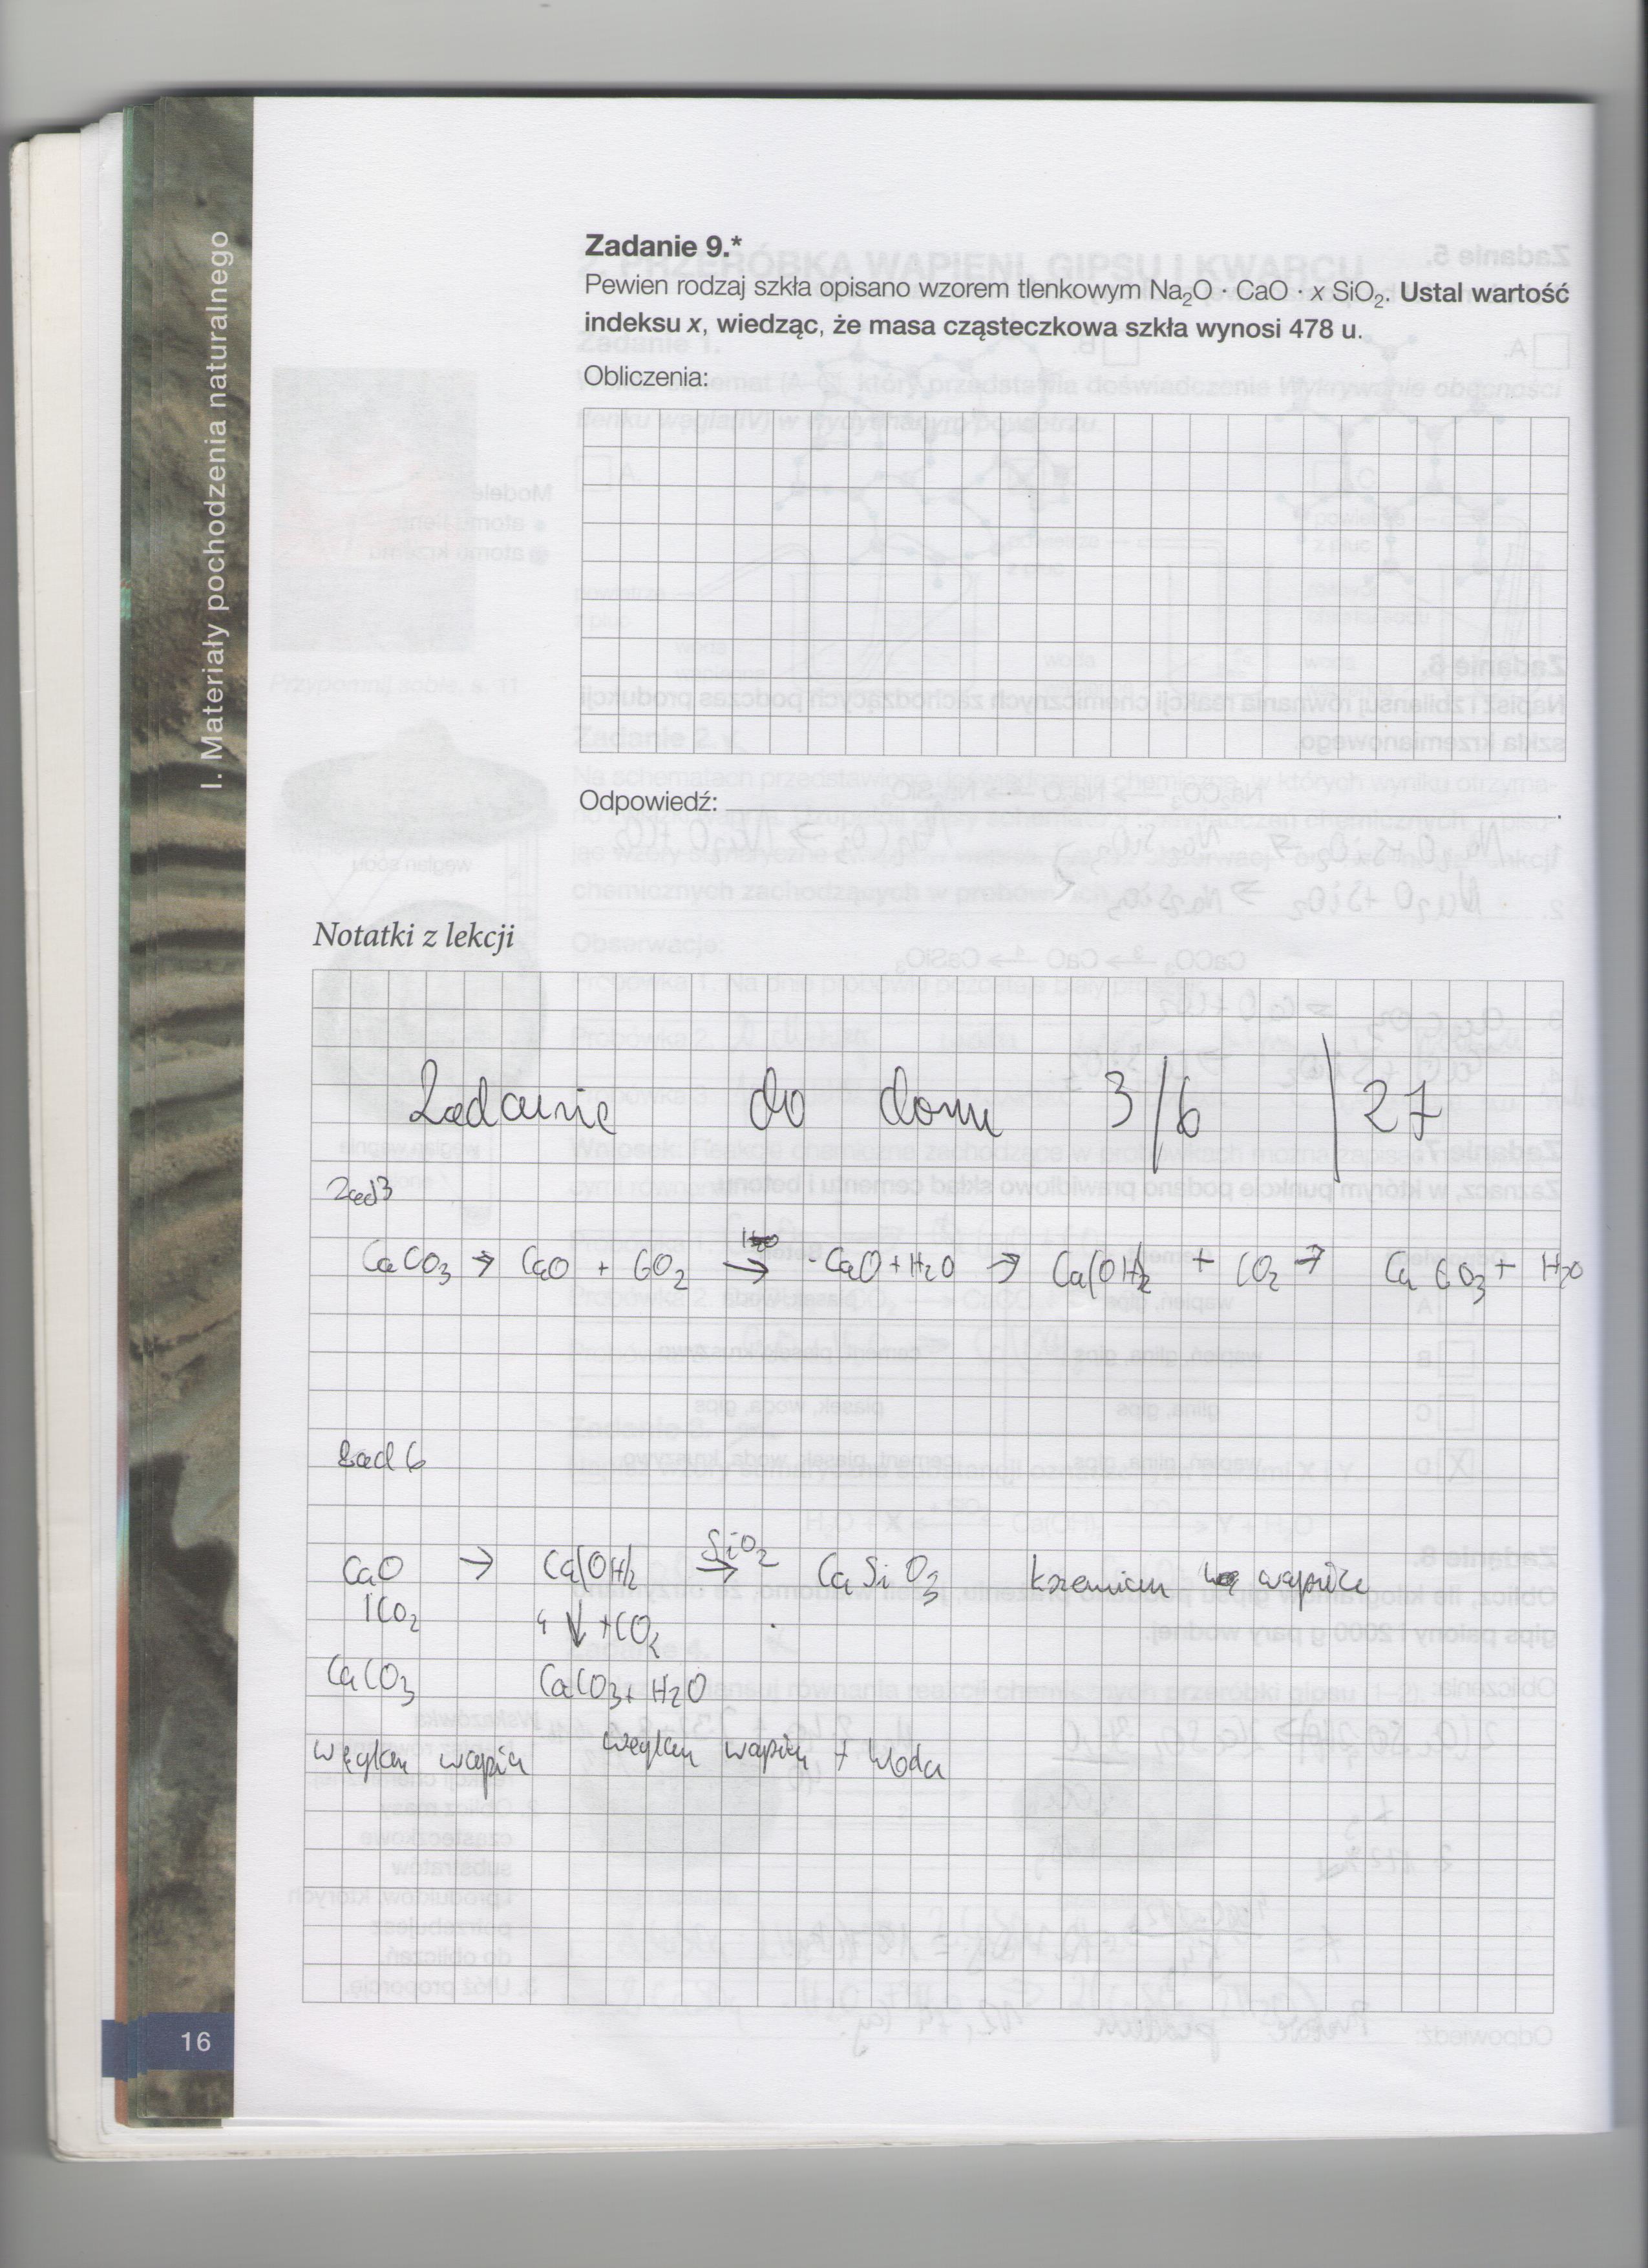 I. Materiały pochodzenia naturalnego
Zadanie 9.*
Pewien rodzaj szkła opisano wzorem tlenkowym Na₂O · CaO · x SiO₂. Ustal wartość
indeksu x, wiedząc, że masa cząsteczkowa szkła wynosi 478 u.
Obliczenia:
Odpowiedź:
Notatki z lekcji
Zadanie do domu 3/6 /27
Zad 3
CaCO₃ → CaO + CO₂ → CaO + H₂O → Ca(OH)₂ + CO₂ → CaCO₃ + H₂O
Zad 6
SiO₂
CaO → Ca(OH)₂ → CaSiO₃ krzemian wapnia
↓ + CO₂
CaCO₃ CaCO₃ + H₂O
węglan wapnia węglan wapnia + woda
16